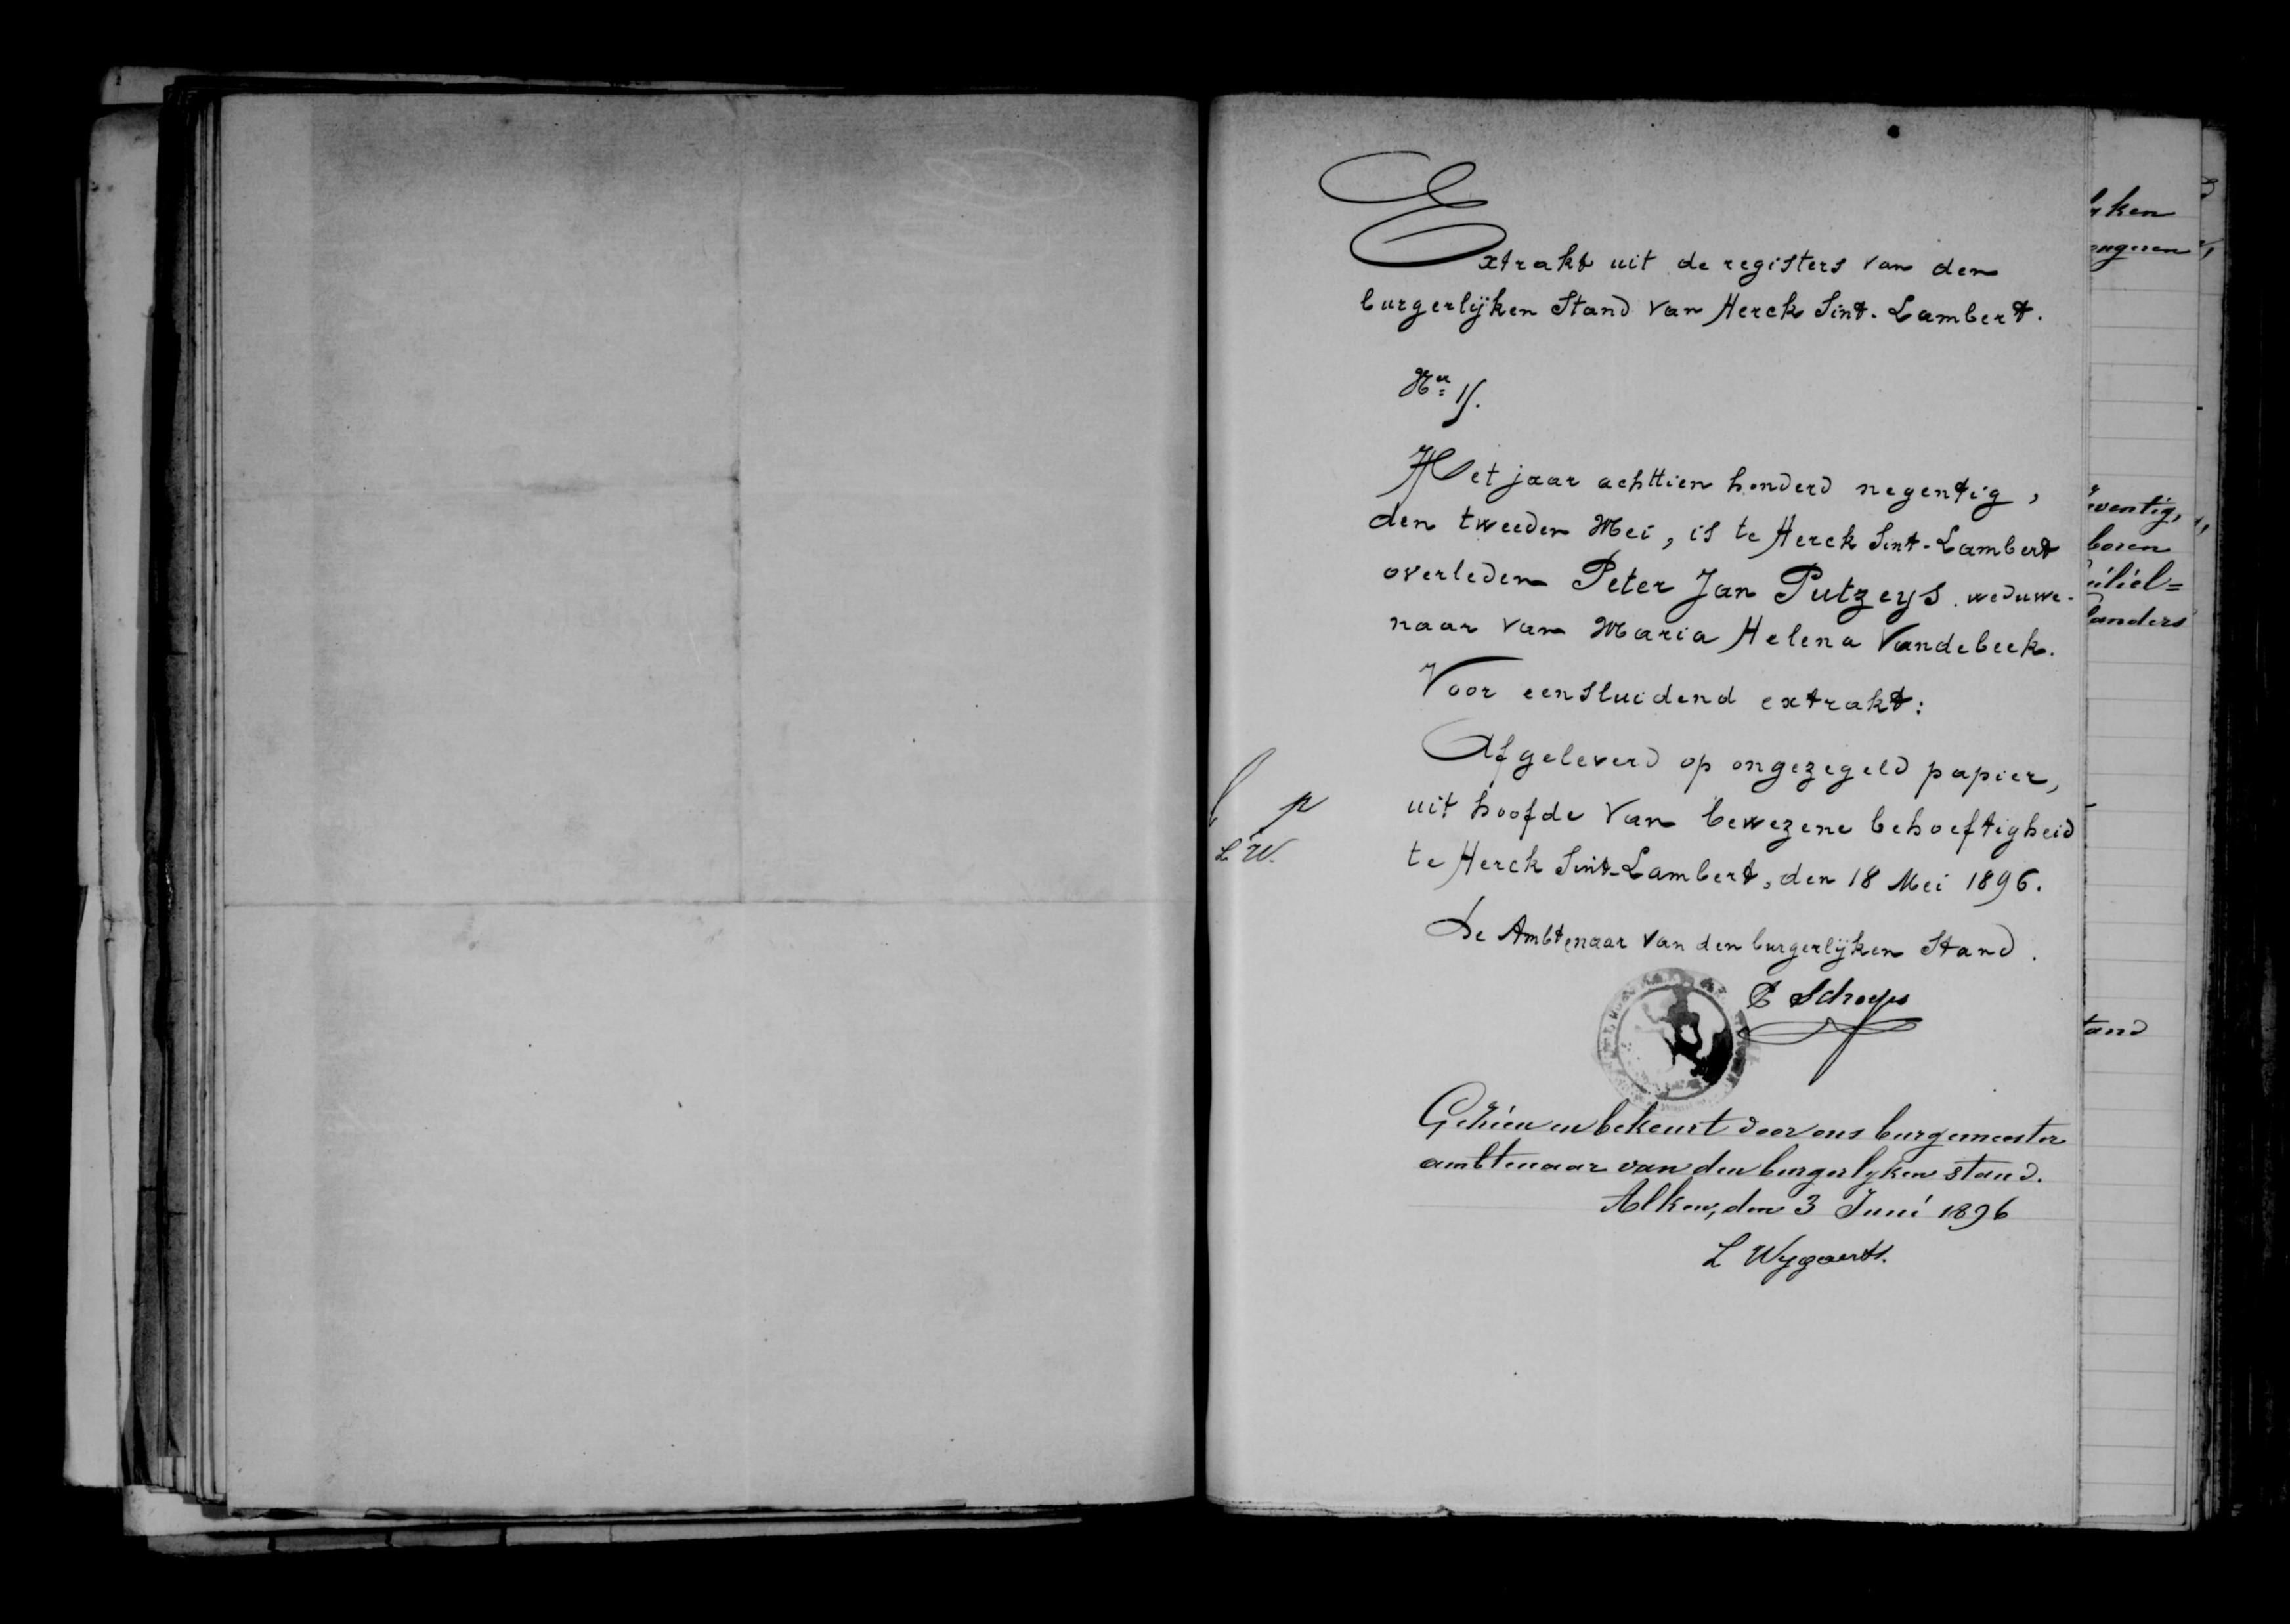 Extrakt uit de registers van den
burgerlijken Stand van Herck Sint-Lambert.
Het jaar achttien honderd negentig,
den tweeden Mei, is te Herck Sint-Lambert
overleden Peter Jan Putzeys weduwe-
naar van Maria Helena Vandebeek.
Voor eensluidend extrakt:
Afgeleverd op ongezegeld papier,
uit hoofde van bewezene behoeftigheid
te Herck Sint-Lambert, den 18 Mei 1896.
De Ambtenaar van den burgerlijken Stand.
Schroyes
Gezien en bekeurt door ons burgemeester
ambtenaar van den burgerlyken stand.
Alken, den 3 Juni 1896
L Wygaerts.
L. W.
ongeren
boren
tand